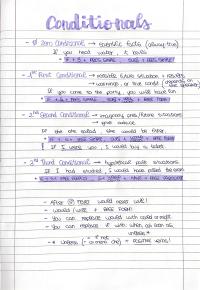 Conditionals
- Ø Zero Conditional → scientific facts (always true)
If you heat water, it boils
IF + S + PRES SIMPLE, SUBJ + PRES SIMPLE
- 1st First Conditional → possible future situation + results
→ warnings, or true condit. (depends on the speaker)
If you come to the party, you will have fun
IF + S + PRES SIMPLE, SUBJ + WILL + BASE FORM
- 2nd Second Conditional → imaginary pres/future situations
→ give advice
If she
would be
IF I were you, I would buy a
- 3rd Third Conditional → hypothetical past situations
If I had studied, I would have passed the exam
- After IF never would never will!
- would / will + BASE FORM
- You can replace would with could or might
- You can replace if with when, as soon as,
unless *
* Unless
= POSITIVE VERB!